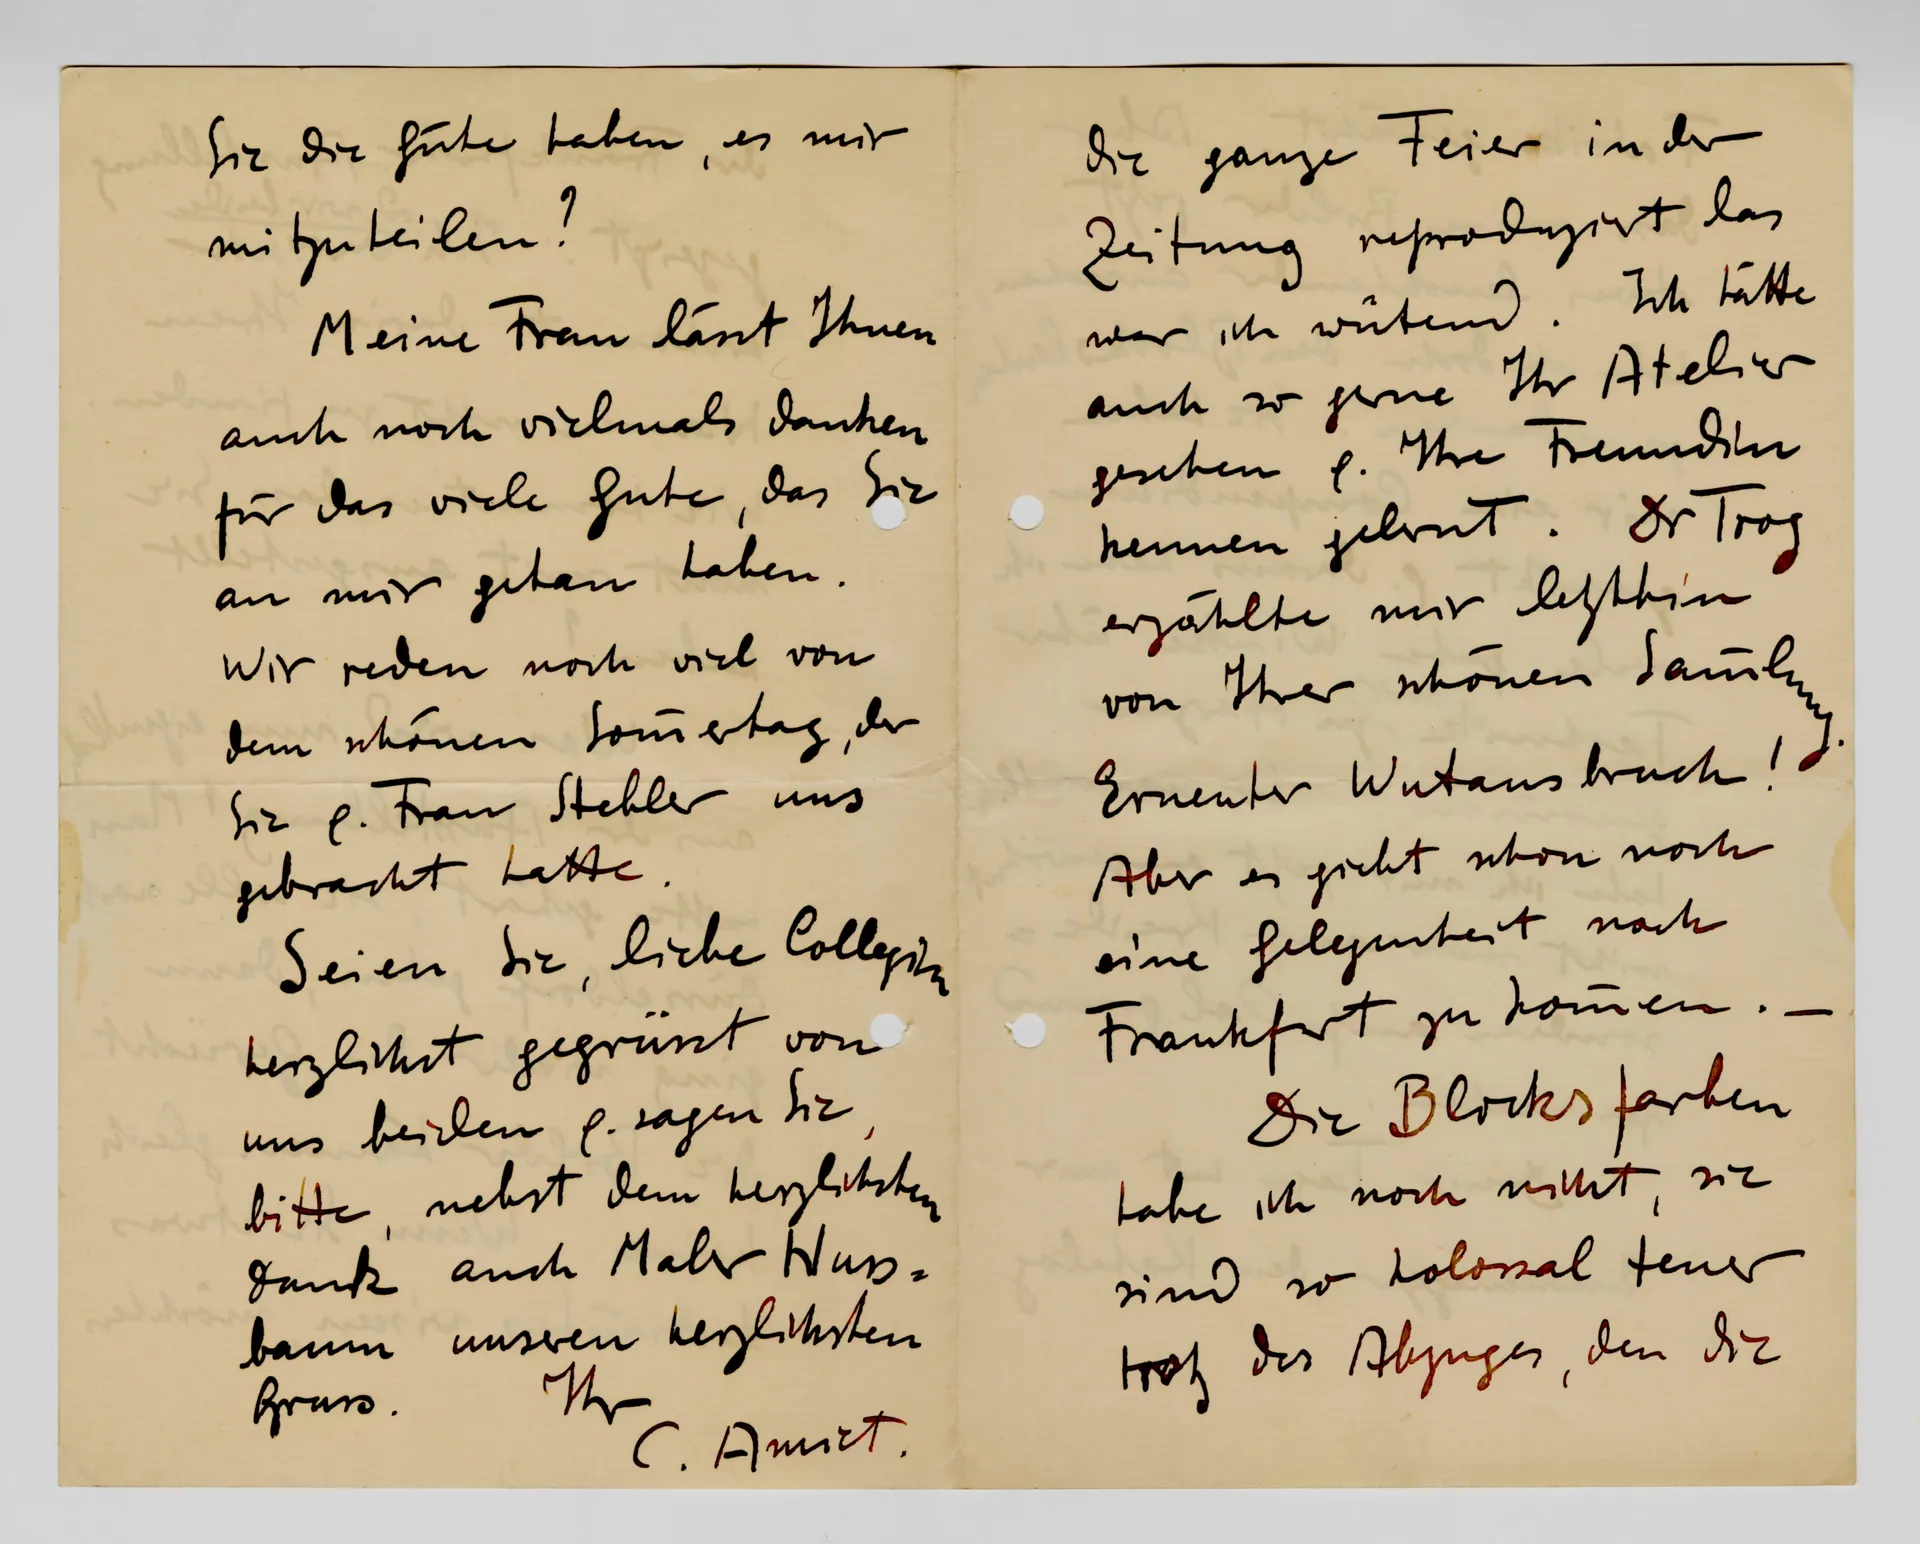 Sie die Güte haben, es mir
mitzuteilen?
Meine Frau lässt Ihnen
auch noch vielmals danken
für das viele Gute, das Sie
an mir getan haben.
Wir reden noch viel von
dem schönen Som̄ertag, der
Sie e. Frau Stehler uns
gebracht hatte.
Seien Sie, liebe Collegin
herzlichst gegrüsst von
uns beiden e. sagen Sie,
bitte, nebst dem herzlichsten
Dank auch Maler Nuss=
baum unseren herzlichsten
Gruss. Ihr
C. Amiet.
die ganze Feier in der
Zeitung reproduziert las
war ich wütend. Ich hätte
auch so gerne Ihr Atelier
gesehen e. Ihre Freundin
kennen gelernt. Dr Trog
erzählte mir letzthin
von Ihrer schönen Sam̄lung.
Erneuter Wutausbruch!
Aber es giebt schon noch
eine Gelegenheit nach
Frankfurt zu kom̄en. —
Die Blockxfarben
habe ich noch nicht, sie
sind so kolossal teuer
trotz des Abzuges, den die